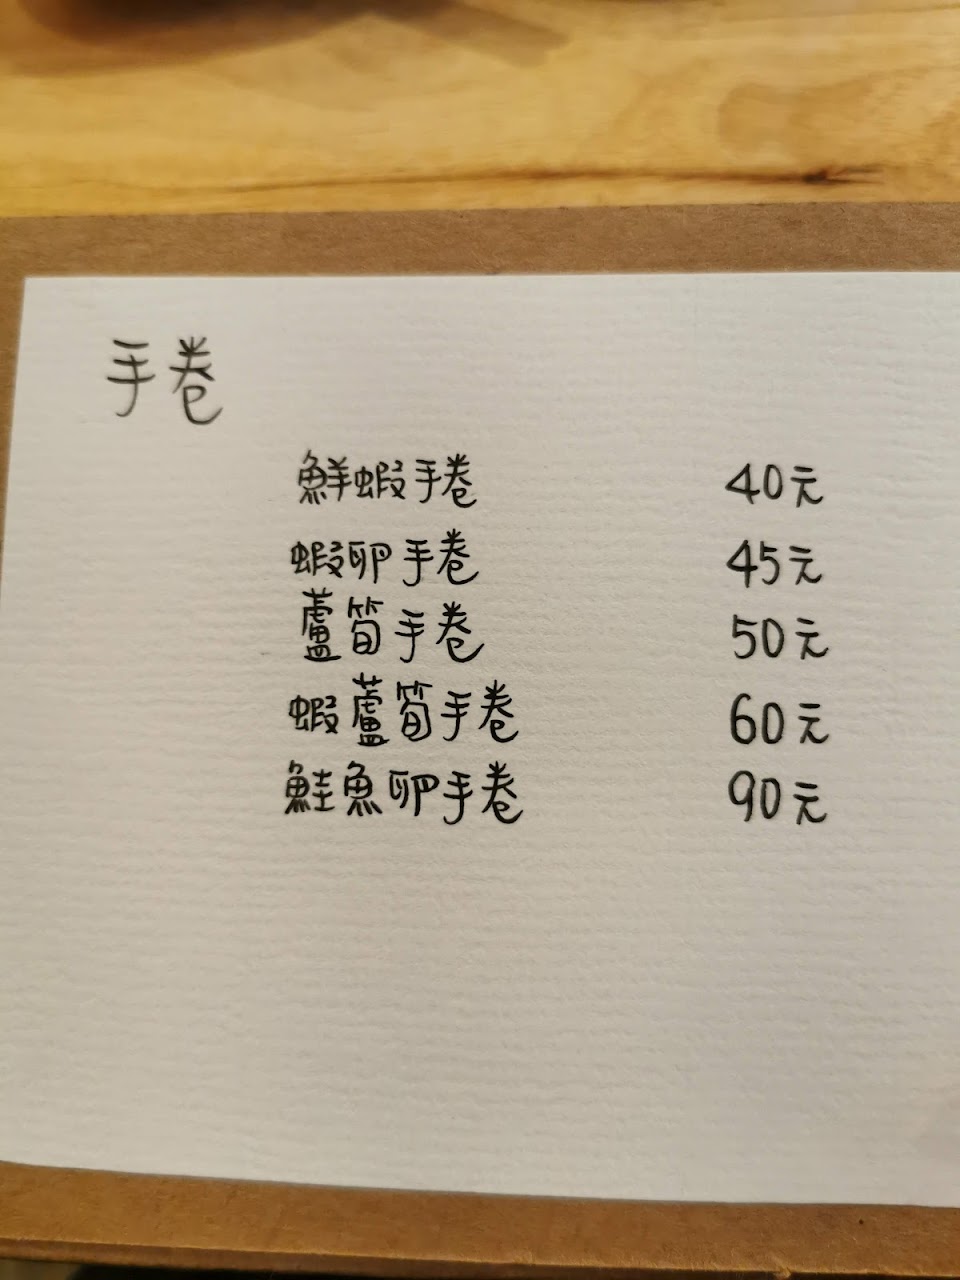 手卷
鮮蝦手卷 40元
蝦卵手卷 45元
蘆筍手卷 50元
蝦蘆筍手卷 60元
鮭魚卵手卷 90元